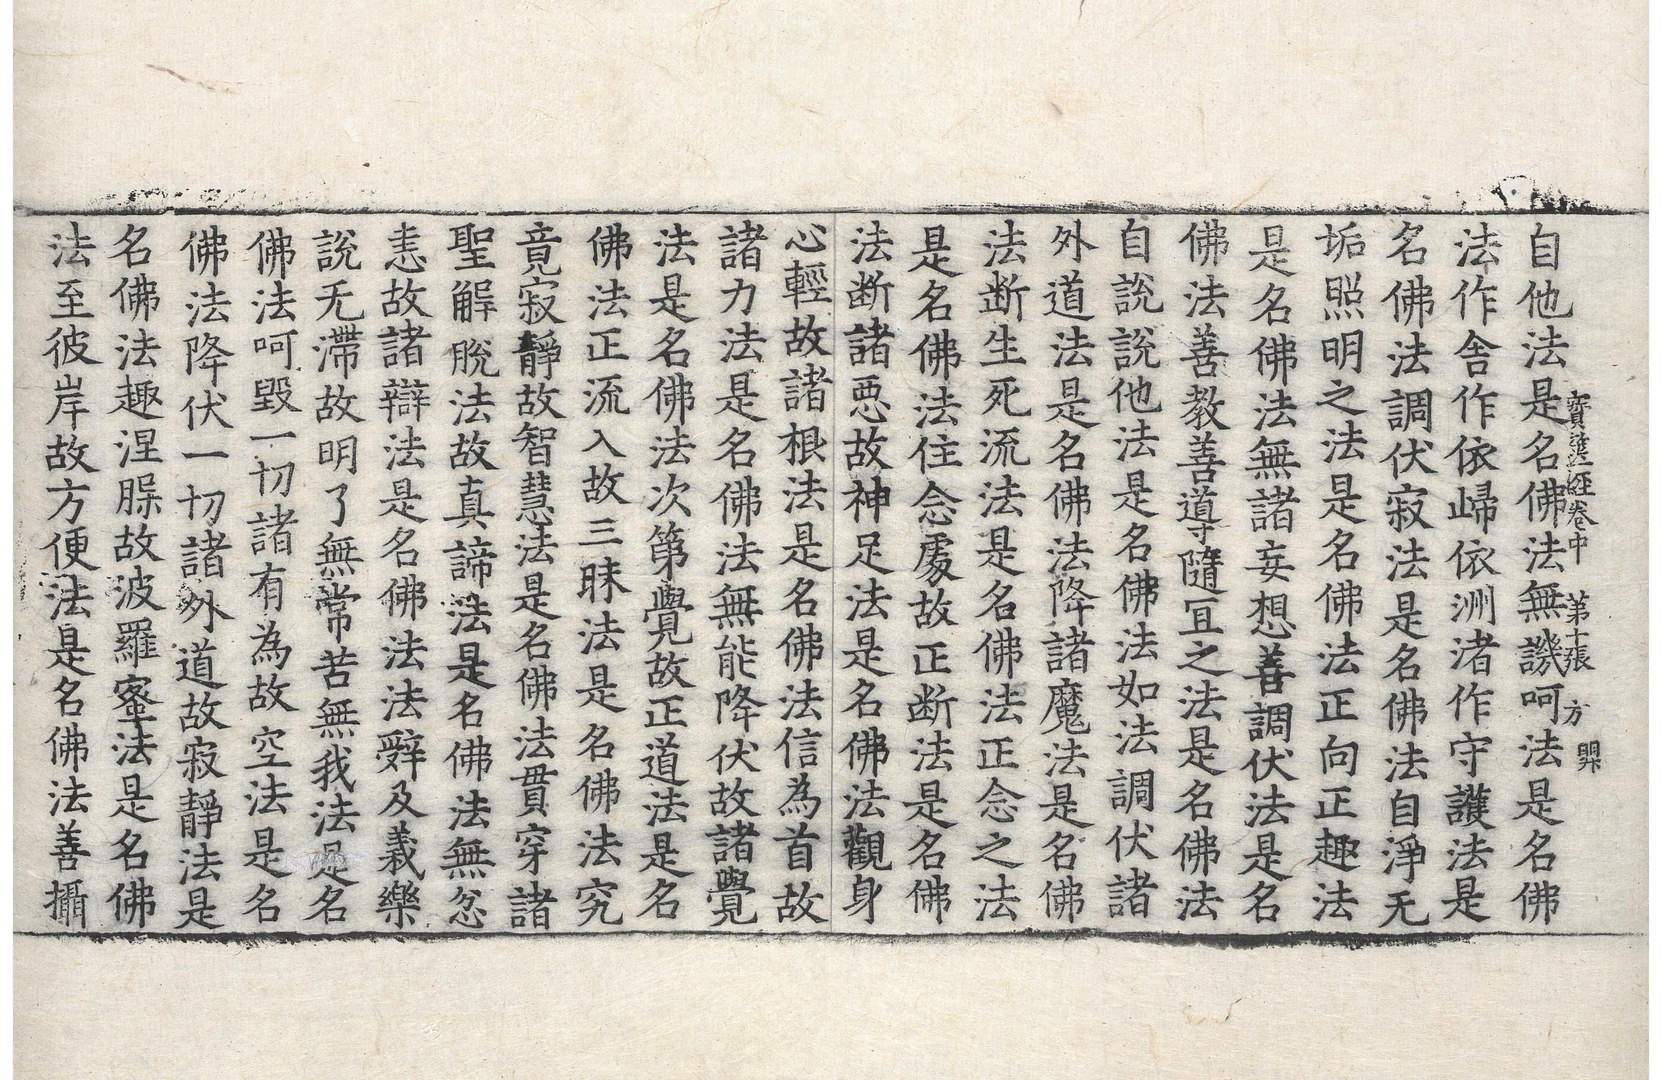 自他法是名佛法無譏呵法是名佛
寶篋經卷中 第十張 方
法作舍作依歸依洲渚作守護法是
名佛法調伏寂法是名佛法自淨无
垢照明之法是名佛法正向正趣法
是名佛法無諸妄想善調伏法是名
佛法善教善導隨宜之法是名佛法
自說說他法是名佛法如法調伏諸
外道法是名佛法降諸魔法是名佛
法断生死流法是名佛法正念之法
是名佛法住念處故正断法是名佛
法断諸惡故神足法是名佛法觀身
心輕故諸根法是名佛法信為首故
諸力法是名佛法無能降伏故諸覺
法是名佛法次第覺故正道法是名
佛法正流入故三昧法是名佛法究
竟寂靜故智慧法是名佛法貫穿諸
聖解脫法故真諦法是名佛法無忿
恚故諸辯法是名佛法法辭及義樂
說无滯故明了無常苦無我法是名
佛法呵毀一切諸有為故空法是名
佛法降伏一切諸外道故寂靜法是
名佛法趣涅槃故波羅蜜法是名佛
法至彼岸故方便法是名佛法善攝